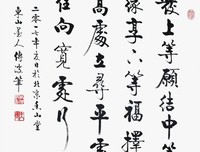 發上等願結中等
緣享下等福擇
高處立尋平處
住向寬處行
二〇一七年夏日於北京東山堂
東山墨人傅筆